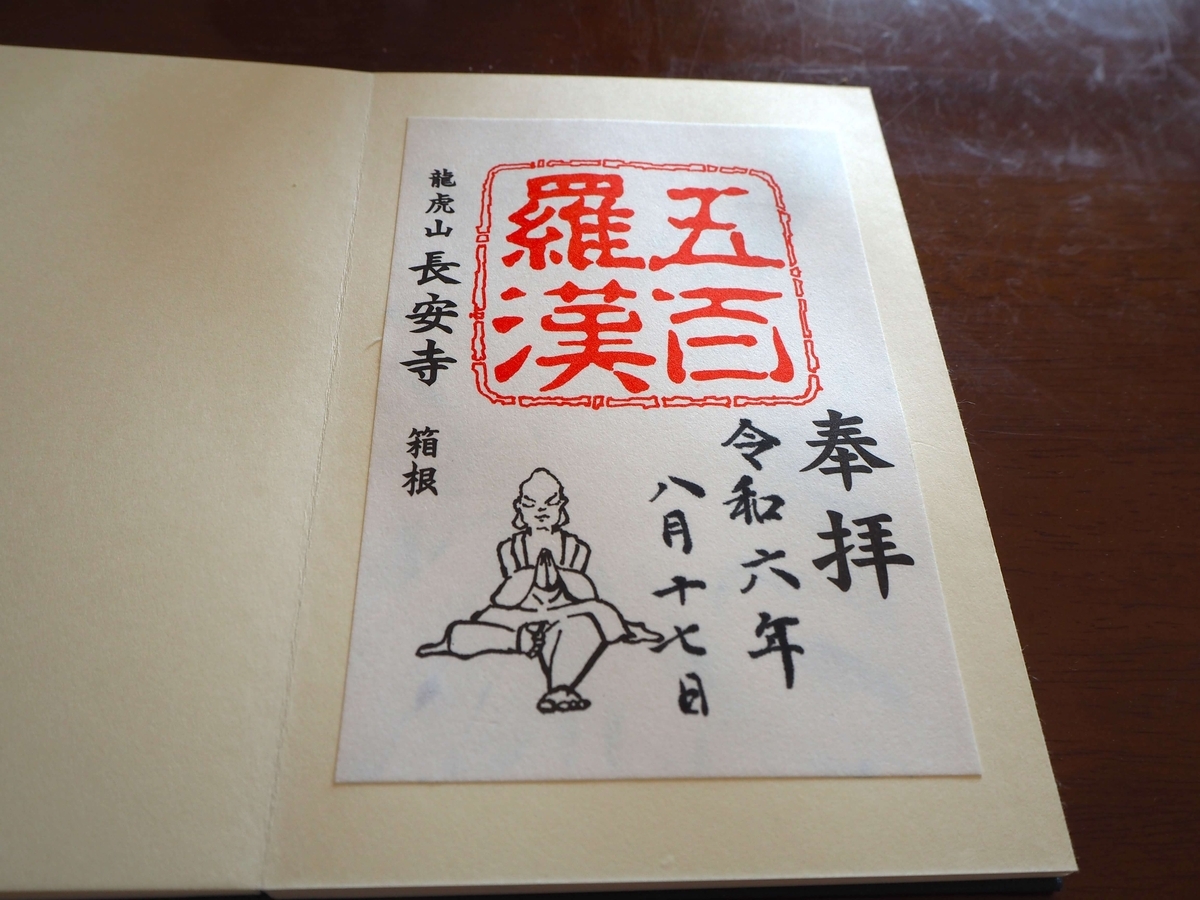 奉拝
令和六年
八月十七日
五百
羅漢
龍虎山 長安寺 箱根